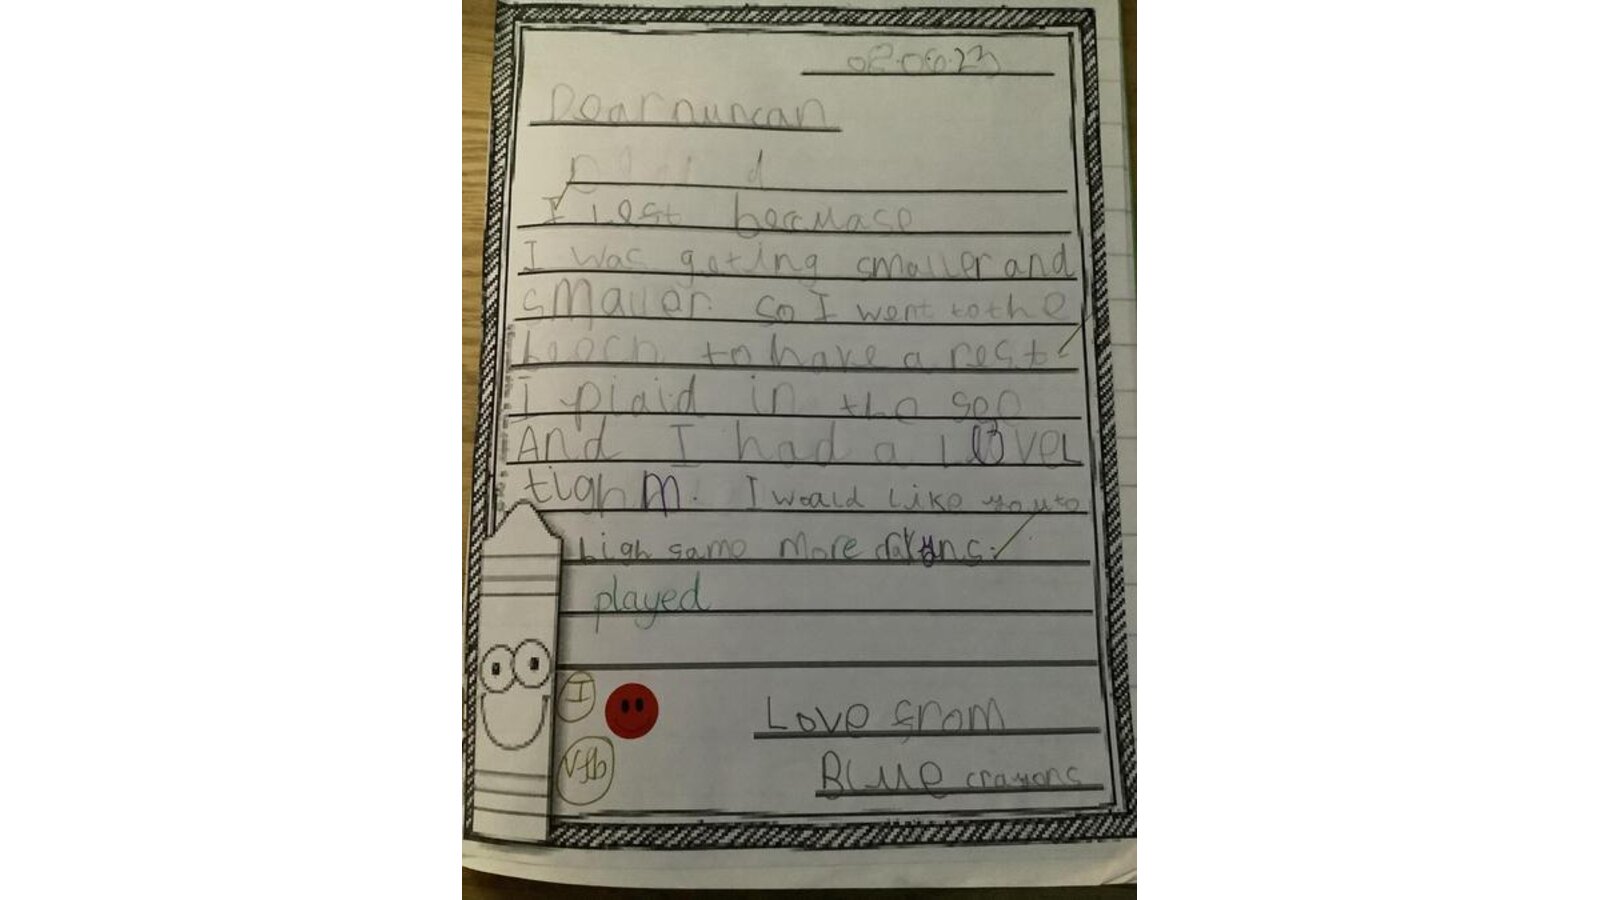 02.06.23
Dear nuncan
I lest because
I was geting smaller and
smaller. so I went to the
beach to have a rest.
I plaid in the see
And I had a lovel
tigh m. I would like you to
bigh some more crayuns.
played
I
Vfb
Love from
Blue crayons